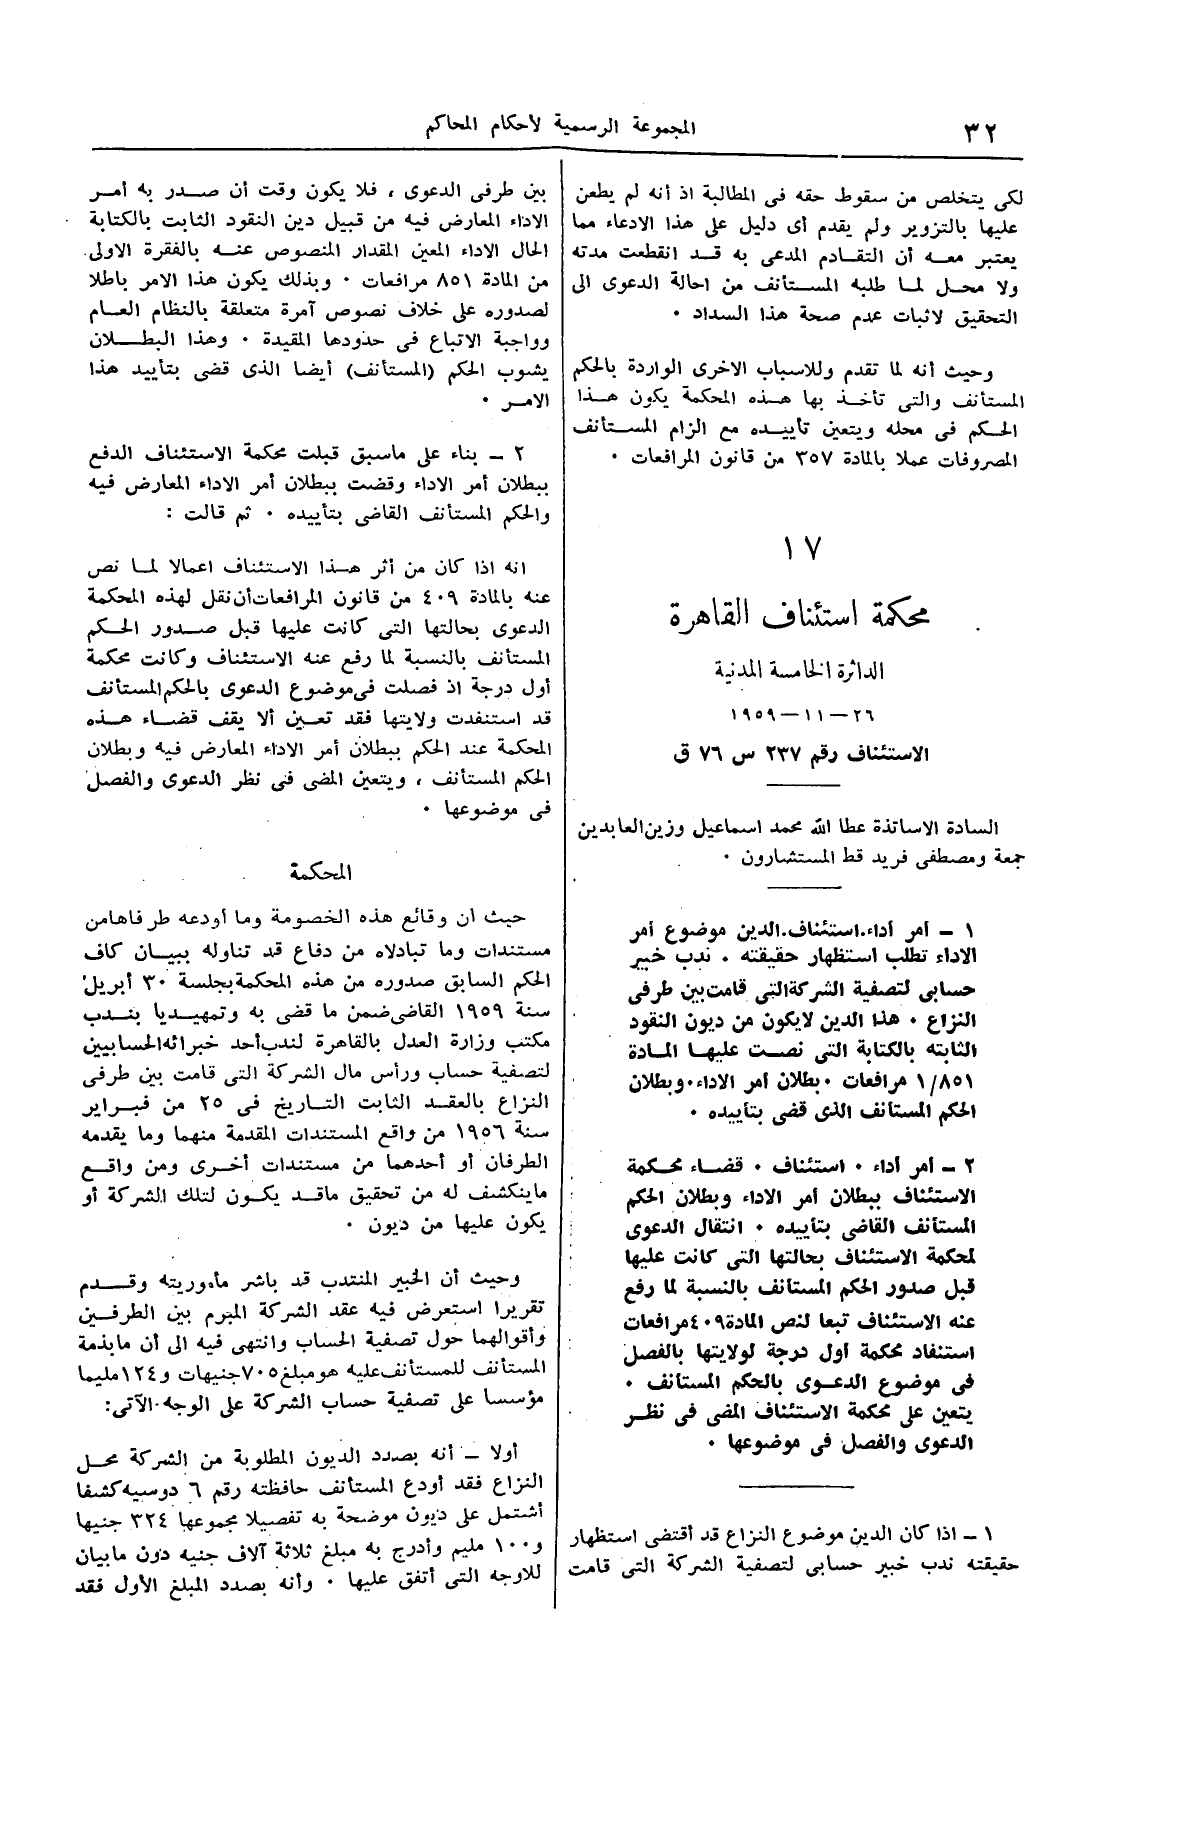 ٣٢
المجموعة الرسمية لأحكام المحاكم
لكى يتخلص من سقوط حقه فى المطالبة اذ أنه لم يطعن
عليها بالتزوير ولم يقدم أى دليل على هذا الادعاء مما
يعتبر معه أن التقادم المدعى به قد انقطعت مدته
ولا محل لما طلبه المستأنف من احالة الدعوى الى
التحقيق لاثبات عدم صحة هذا السداد ٠
وحيث أنه لما تقدم وللاسباب الاخرى الواردة بالحكم
المستأنف والتى تأخذ بها هذه المحكمة يكون هذا
الحكم فى محله ويتعين تأييده مع الزام المستأنف
المصروفات عملا بالمادة ٣٥٧ من قانون المرافعات ٠
١٧
محكمة استئناف القاهرة
الدائرة الخامسة المدنية
٢٦ – ١١ – ١٩٥٩
الاستئناف رقم ٢٣٧ س ٧٦ ق
السادة الاساتذة عطا الله محمد اسماعيل وزين العابدين
جمعة ومصطفى فريد قط المستشارون ٠
١ – أمر أداء.استئناف.الدين موضوع أمر
الاداء تطلب استظهار حقيقته ٠ ندب خبير
حسابى لتصفية الشركة التى قامت بين طرفى
النزاع ٠ هذا الدين لايكون من ديون النقود
الثابته بالكتابة التى نصت عليها المادة
٨٥١/١ مرافعات ٠ بطلان أمر الاداء٠وبطلان
الحكم المستأنف الذى قضى بتأييده ٠
٢ – أمر أداء ٠ استئناف ٠ قضاء محكمة
الاستئناف ببطلان أمر الاداء وبطلان الحكم
المستأنف القاضى بتأييده ٠ انتقال الدعوى
لمحكمة الاستئناف بحالتها التى كانت عليها
قبل صدور الحكم المستأنف بالنسبة لما رفع
عنه الاستئناف تبعا لنص المادة٤٠٩مرافعات
استنفاد محكمة أول درجة لولايتها بالفصل
فى موضوع الدعوى بالحكم المستأنف ٠
يتعين على محكمة الاستئناف المضى فى نظر
الدعوى والفصل فى موضوعها ٠
١ – اذا كان الدين موضوع النزاع قد أقتضى استظهار
حقيقته ندب خبير حسابى لتصفية الشركة التى قامت
بين طرفى الدعوى ، فلا يكون وقت أن صدر به أمر
الاداء المعارض فيه من قبيل دين النقود الثابت بالكتابة
الحال الاداء المعين المقدار المنصوص عنه بالفقرة الاولى
من المادة ٨٥١ مرافعات ٠ وبذلك يكون هذا الامر باطلا
لصدوره على خلاف نصوص آمرة متعلقة بالنظام العام
وواجبة الاتباع فى حدودها المقيدة ٠ وهذا البطلان
يشوب الحكم (المستأنف) أيضا الذى قضى بتأييد هذا
الامر ٠
٢ – بناء على ماسبق قبلت محكمة الاستئناف الدفع
ببطلان أمر الاداء وقضت ببطلان أمر الاداء المعارض فيه
والحكم المستأنف القاضى بتأييده ٠ ثم قالت :
انه اذا كان من أثر هذا الاستئناف اعمالا لما نص
عنه بالمادة ٤٠٩ من قانون المرافعات أن نقل لهذه المحكمة
الدعوى بحالتها التى كانت عليها قبل صدور الحكم
المستأنف بالنسبة لما رفع عنه الاستئناف وكانت محكمة
أول درجة اذ فصلت فى موضوع الدعوى بالحكم المستأنف
قد استنفدت ولايتها فقد تعين ألا يقف قضاء هذه
المحكمة عند الحكم ببطلان أمر الاداء المعارض فيه وبطلان
الحكم المستأنف ، ويتعين المضى فى نظر الدعوى والفصل
فى موضوعها ٠
المحكمة
حيث أن وقائع هذه الخصومة وما أودعه طرفاها من
مستندات وما تبادلاه من دفاع قد تناوله ببيان كاف
الحكم السابق صدوره من هذه المحكمة بجلسة ٣٠ أبريل
سنة ١٩٥٩ القاضى ضمن ما قضى به وتمهيديا بندب
مكتب وزارة العدل بالقاهرة لندب أحد خبرائه الحسابيين
لتصفية حساب ورأس مال الشركة التى قامت بين طرفى
النزاع بالعقد الثابت التاريخ فى ٢٥ من فبراير
سنة ١٩٥٦ من واقع المستندات المقدمة منهما وما يقدمه
الطرفان أو أحدهما من مستندات أخرى ومن واقع
ماينكشف له من تحقيق ماقد يكون لتلك الشركة أو
يكون عليها من ديون ٠
وحيث أن الخبير المنتدب قد باشر مأموريته وقدم
تقريرا استعرض فيه عقد الشركة المبرم بين الطرفين
وأقوالهما حول تصفية الحساب وانتهى فيه الى أن مابذمة
المستأنف للمستأنف عليه هو مبلغ ٧٠٥ جنيهات و١٢٤ مليما
مؤسسا على تصفية حساب الشركة على الوجه الآتى:
أولا – أنه بصدد الديون المطلوبة من الشركة محل
النزاع فقد أودع المستأنف حافظته رقم ٦ دوسيه كشفا
أشتمل على ديون موضحة به تفصيلا مجموعها ٣٢٤ جنيها
و١٠٠ مليم وأدرج به مبلغ ثلاثة آلاف جنيه دون مابيان
للاوجه التى أتفق عليها ٠ وأنه بصدد المبلغ الأول فقد